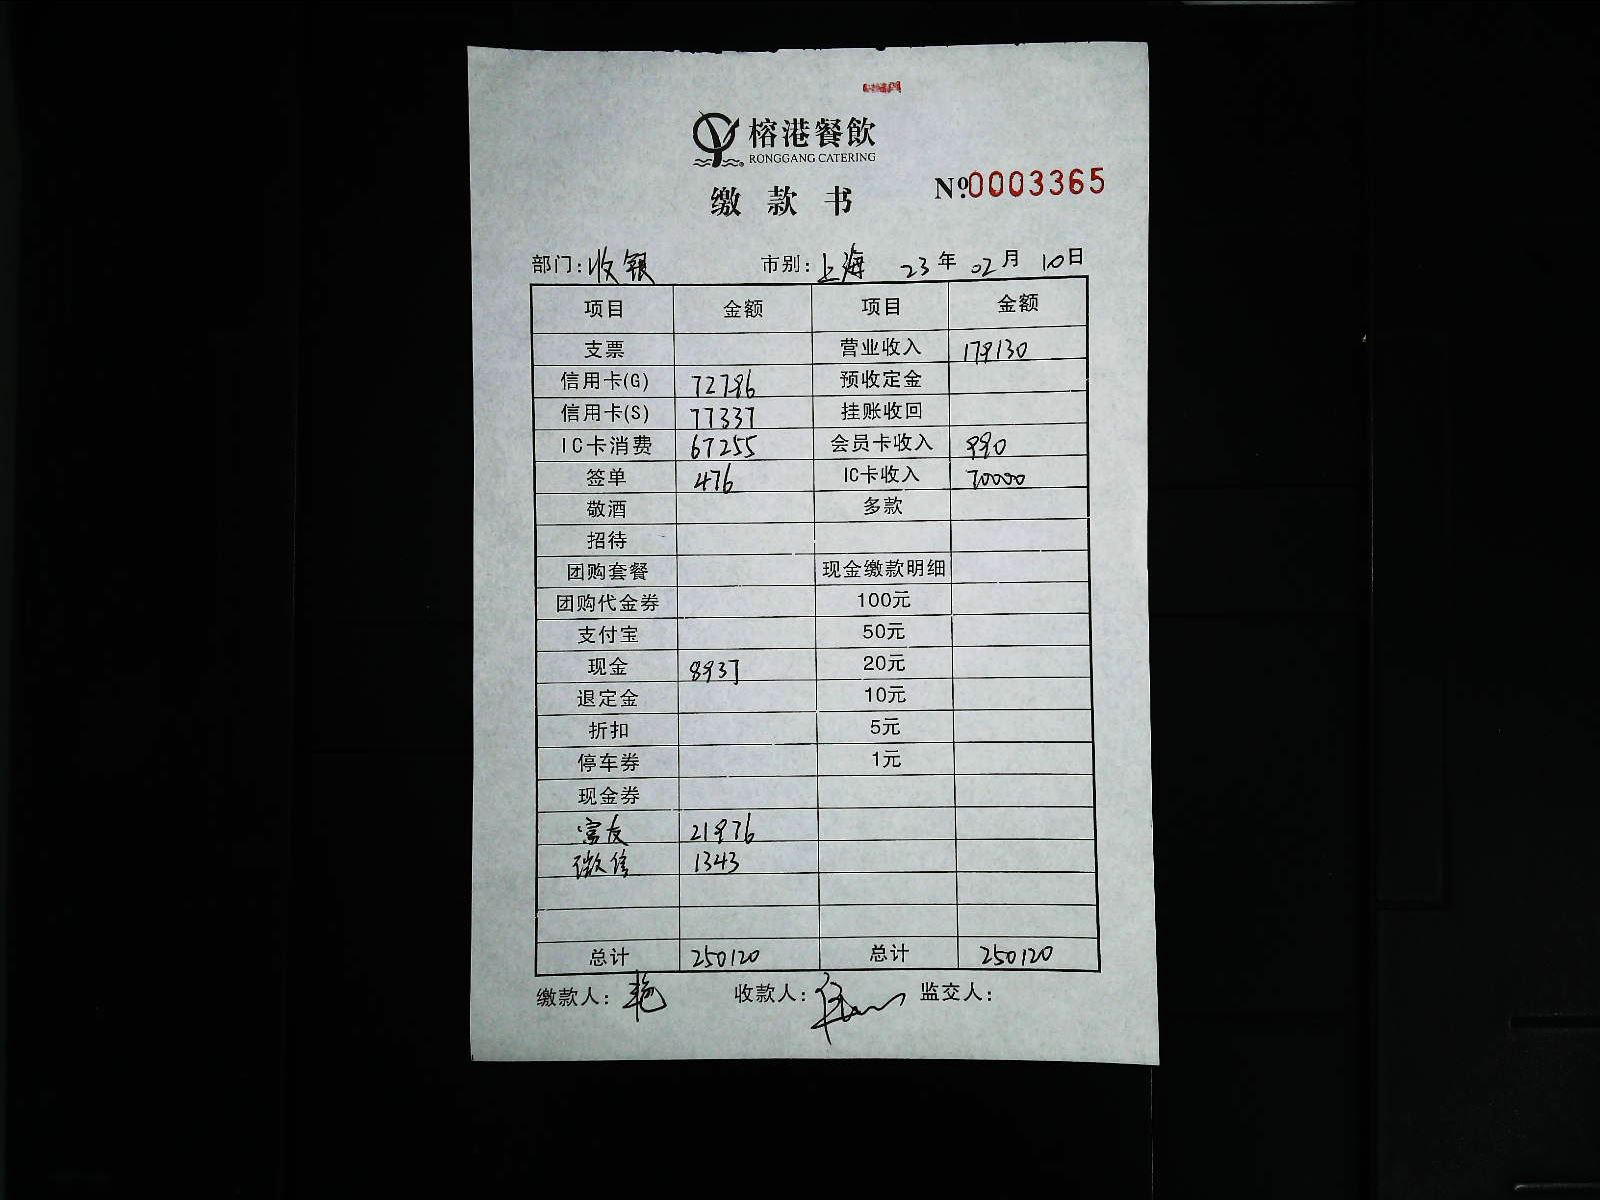 榕港餐飲
RONGGANG CATERING
缴款书
№0003365
部门:收银 市别:上海 23年02月10日
项目 金额 项目 金额
支票 营业收入 179130
信用卡(G) 72796 预收定金
信用卡(S) 77337 挂账收回
IC卡消费 67255 会员卡收入 990
签单 476 IC卡收入 70000
敬酒 多款
招待
团购套餐 现金缴款明细
团购代金券 100元
支付宝 50元
现金 8937 20元
退定金 10元
折扣 5元
停车券 1元
现金券
富友 21976
微信 1343
总计 250120 总计 250120
缴款人:艳 收款人: 监交人: